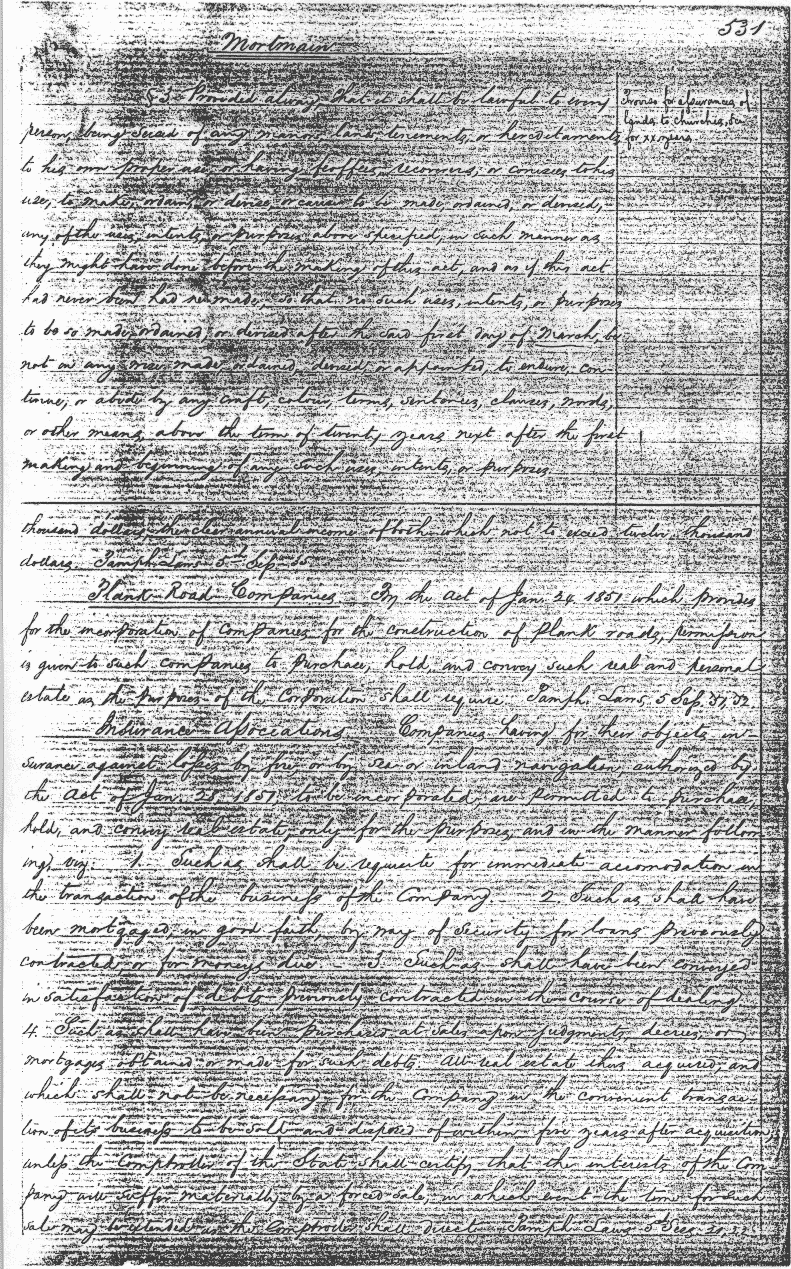 531
Mortmain
§3. Provided always, that it shall be lawful to every
person, being seised of any manors, lands, tenements, or hereditaments,
to his own proper use, or having feoffees, recoverers, or conisees to his
use, to make, ordain, or devise, or cause to be made, ordained, or devised,
any of the uses, intents, or purposes above specified, in such manner as
they might have done before the making of this act, and as if this act
had never been had ne made; so that no such uses, intents, or purposes
to be so made, ordained, or devised after the said first day of March, be
not in any wise made, ordained, devised, or appointed, to endure, con-
tinue, or abide by any craft, colour, terms, sentences, clauses, words,
or other means, above the term of twenty years next after the first
making and beginning of any such uses, intents, or purposes.
Proviso for assurances of
lands to churches, &c
for xx years.
thousand dollars, the clear annual income of both which not to exceed twelve thousand
dollars. Pamph. Laws 5th Sess.
Plank Road Companies. By the Act of Jan. 24 1851 which provides
for the incorporation of Companies for the construction of Plank roads, permission
is given to such companies to purchase, hold, and convey such real and personal
estate as the purposes of the Corporation shall require. Pamph. Laws, 5 Sess.
Insurance Associations. Companies having for their objects in-
surance against losses by fire, or by sea or inland navigation, authorized by
the Act of Jan. 1851, to be incorporated, are permitted to purchase,
hold, and convey real estate only for the purposes and in the manner follow-
ing, viz. 1. Such as shall be requisite for immediate accomodation in
the transaction of the business of the Company. 2. Such as shall have
been mortgaged, in good faith, by way of Security for loans previously
contracted, or for moneys due. 3. Such as shall have been conveyed
in satisfaction of debts previously contracted in the course of dealing.
4. Such as shall have been purchased at sales upon judgments, decrees, or
mortgages obtained or made for such debts. All real estate thus acquired, and
which shall not be necessary for the Company in the convenient transac-
tion of its business to be sold and disposed of within five years after acquisition,
unless the Comptroller of the State shall certify that the interests of the Com-
pany will suffer materially by a forced sale, in which event the time for such
sale may be extended as the Comptroller shall direct. Pamph. Laws 5th Sess.